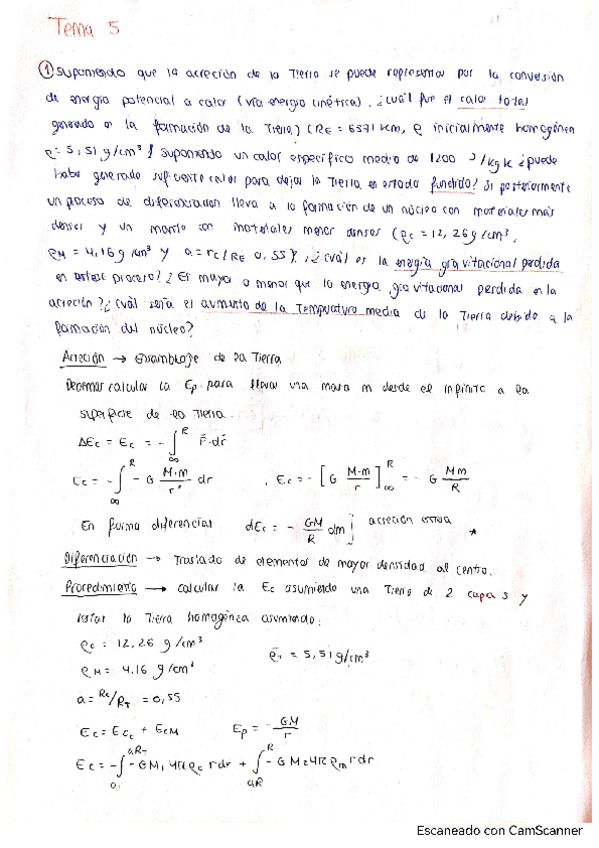 Tema 5
① Suponiendo que la acreción de la Tierra se puede representar por la conversión
de energía potencial a calor (vía energía cinética). ¿cuál fue el calor total
generado en la formación de la Tierra? (RE = 6371 km, ρ inicialmente homogénea
ρ = 5,51 g/cm³) Suponiendo un calor específico medio de 1200 J/kg K ¿puede
haber generado suficiente calor para dejar la Tierra en estado fundido? Si posteriormente
un proceso de diferenciación lleva a la formación de un núcleo con materiales más
densos y un manto con materiales menos densos (ρc = 12,26 g/cm³,
ρM = 4,16 g/cm³ y a = rc/RE 0,55), ¿cuál es la energía gravitacional perdida
en este proceso? ¿Es mayor o menor que la energía gravitacional perdida en la
acreción? ¿cuál sería el aumento de la temperatura media de la Tierra debido a la
formación del núcleo?
Acreción → Ensamblaje de la Tierra
Debemos calcular la Ep para llevar una masa m desde el infinito a la
superficie de la Tierra.
ΔEc = Ec = - ∫∞^R F̄·dr̄
Ec = - ∫∞^R - G M·m/r² dr , Ec = - [G M·m/r]∞^R = - G Mm/R
En forma diferencial dEc = - GM/R dm] acreción *
Diferenciación → Traslado de elementos de mayor densidad al centro.
Procedimiento → calcular la Ec asumiendo una Tierra de 2 capas y
restar la Tierra homogénea asumiendo:
ρc = 12,26 g/cm³
ρT = 5,51 g/cm³
ρM = 4.16 g/cm³
a = Rc/RT = 0,55
Ec = Ecc + EcM Ep = - GM/r
Ec = - ∫0^aRT - GM1 4πρc r dr + ∫aR^R - GM2 4πρm r dr
Escaneado con CamScanner